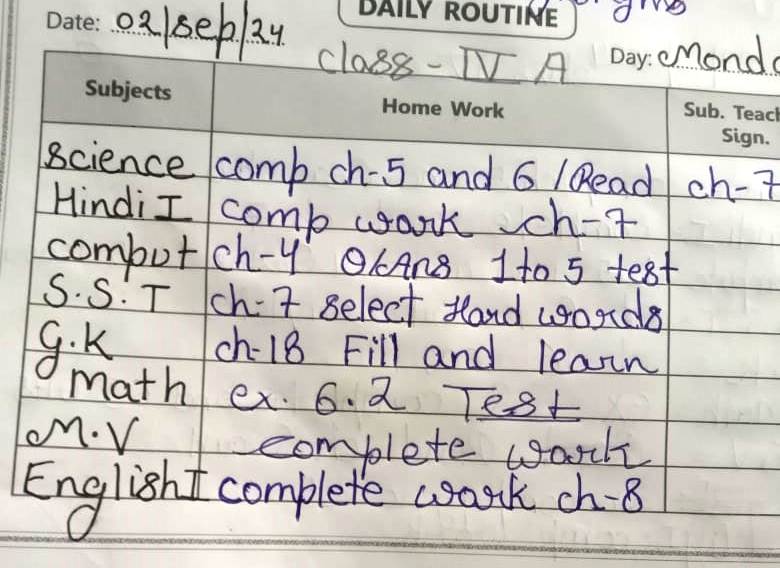 DAILY ROUTINE
Date: 02/Sep/24
Class - IV A Day: Monda
Subjects Home Work Sub. Teach Sign.
Science comp ch-5 and 6 / Read ch-7
Hindi I comp work ch-7
comput ch-4 Q/Ans 1 to 5 test
S.S.T ch-7 select Hard words
G.K ch-18 Fill and learn
Math ex. 6.2 Test
M.V complete work
English I complete work ch-8